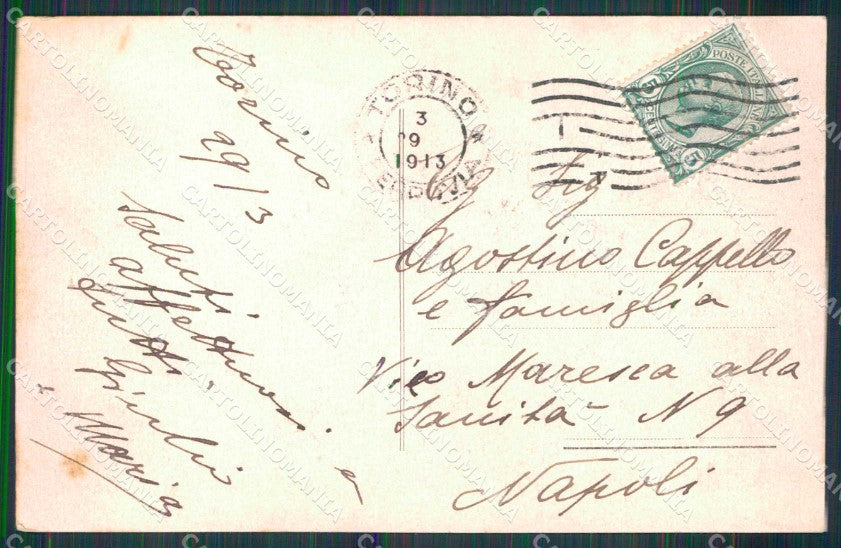 Torino
29/3
Saluti
affettuosi a
tutti
Giulio
e Maria
TORINO
3
29
1913
FERROVIA
POSTE ITALIANE
Sig
Agostino Cappello
e famiglia
Vico Maresca alla
Sanità N 9
Napoli
CARTOLINOMANIA